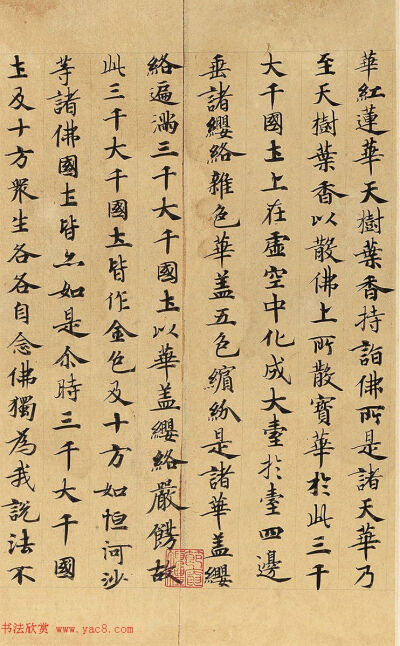 華紅蓮華天樹葉香持詣佛所是諸天華乃
至天樹葉香以散佛上所散寶華於此三千
大千國土上在虛空中化成大臺於臺四邊
垂諸纓絡雜色華盖五色繽紛是諸華盖纓
絡遍滿三千大千國土以華盖纓絡嚴餝故
此三千大千國土皆作金色及十方如恒河沙
等諸佛國土皆尒如是尒時三千大千國
土及十方衆生各各自念佛獨為我說法不
书法欣赏 www.yac8.com